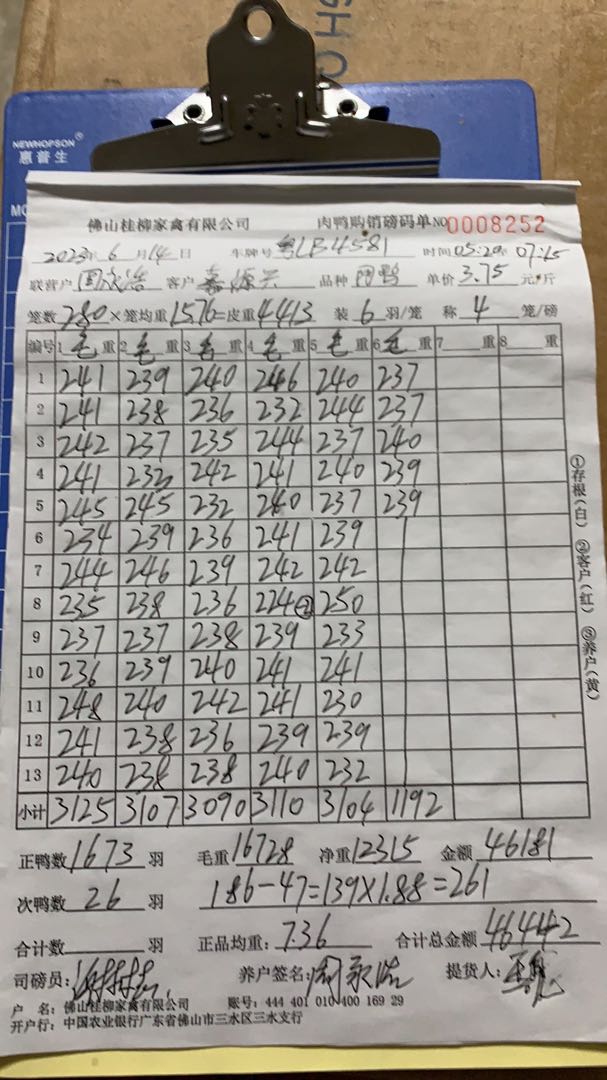 NEWHOPSON®
惠普生
佛山桂柳家禽有限公司 肉鸭购销磅码单NO 0008252
2023年6月14日 车牌号 粤LB4581 时间05:20 07:15
联营户 客户 嘉源兴 品种 肉鸭 单价3.75元/斤
笼数280×笼均重15.76=皮重4413 装6羽/笼 称4笼/磅
编号 1毛重 2毛重 3毛重 4毛重 5毛重 6毛重 7重 8重
1 241 239 240 246 240 237
2 241 238 236 232 244 237
3 242 237 235 244 237 240
4 241 232 242 241 240 239
5 245 245 232 240 237 239
6 234 239 236 241 239
7 244 246 239 242 242
8 235 238 236 224 -2 250
9 237 237 238 239 233
10 236 239 240 241 241
11 248 240 242 241 230
12 241 238 236 239 239
13 240 238 238 240 232
小计 3125 3107 3090 3110 3104 1192
①存根(白) ②客户(红) ③养户(黄)
正鸭数1673羽 毛重16728 净重12315 金额46181
次鸭数26羽 186-47=139×1.88=261
合计数 羽 正品均重:7.36 合计总金额46442
司磅员: 养户签名: 提货人:
户 名:佛山桂柳家禽有限公司 账号:444 401 010 400 169 29
开户行:中国农业银行广东省佛山市三水区三水支行